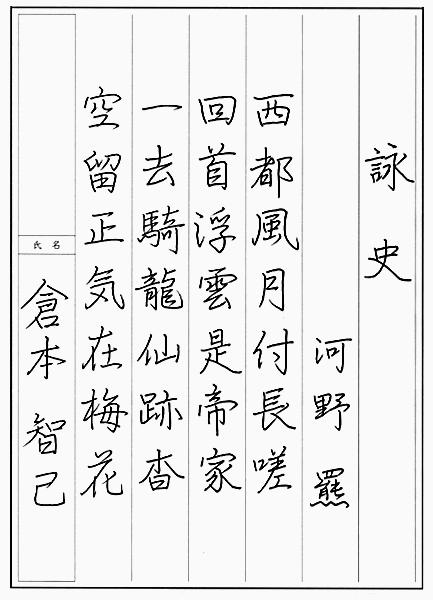 詠史
河野 羆
西都風月付長嗟
回首浮雲是帝家
一去騎龍仙跡杳
空留正気在梅花
氏名
倉本智己